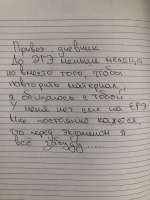 Привет дневник
До ЭГЭ меньше месяца
но вместо того, чтобы
повторять материал,
я общаюсь с тобой
У меня нет сил на ЕГЭ
Мне постоянно кажется,
что перед экзаменом я
всё забуду......